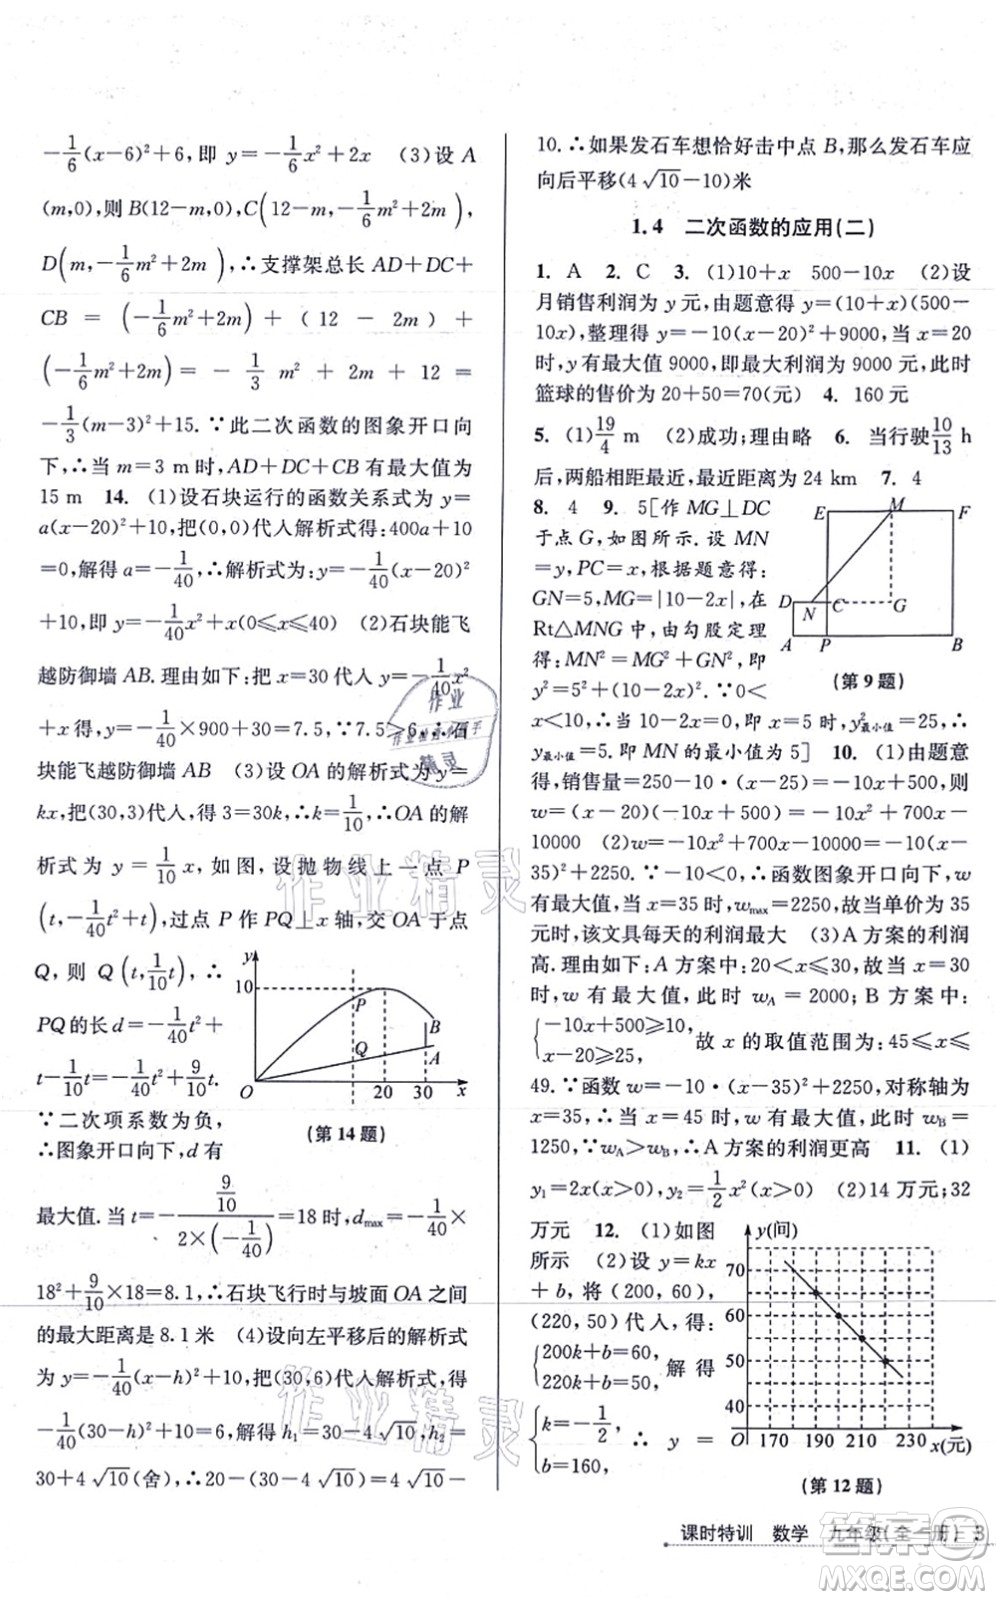 -1/6(x-6)²+6,即 y=-1/6x²+2x (3)设 A
(m,0),则B(12-m,0),C(12-m,-1/6m²+2m),
D(m,-1/6m²+2m),∴支撑架总长 AD+DC+
CB = (-1/6m²+2m) + (12 - 2m) +
(-1/6m²+2m) = -1/3 m² + 2m + 12 =
-1/3(m-3)²+15.∵此二次函数的图象开口向
下,∴当 m=3 m时,AD+DC+CB有最大值为
15 m 14. (1)设石块运行的函数关系式为 y=
a(x-20)²+10,把(0,0)代人解析式得:400a+10
=0,解得a=-1/40,∴解析式为:y=-1/40(x-20)²
+10,即 y=-1/40x²+x(0≤x≤40) (2)石块能飞
越防御墙AB.理由如下:把x=30代人y=-1/40x²
+x得,y=-1/40×900+30=7.5,∵7.5>6,∴石
块能飞越防御墙AB (3)设OA的解析式为y=
kx,把(30,3)代人,得 3=30k,∴k=1/10,OA的解
析式为 y=1/10x,如图,设抛物线上一点 P
(t,-1/40t²+t),过点 P 作PQ⊥x轴,交OA于点
Q,则 Q(t,1/10t),∴
PQ的长 d=-1/40t²+
t-1/10t=-1/40t²+9/10t.
∵二次项系数为负,
∴图象开口向下,d 有
最大值.当t=-(9/10)/(2×(-1/40))=18时,d max=-1/40×
18²+9/10×18=8.1,∴石块飞行时与坡面OA之间
的最大距离是8.1米 (4)设向左平移后的解析式
为y=-1/40(x-h)²+10,把(30,6)代人解析式,得
-1/40(30-h)²+10=6,解得 h₁=30-4√10,h₂=
30+4√10(舍),∴20-(30-4√10)=4√10-
y
10
P
B
Q
A
O
20
30
x
(第14题)
10.∴如果发石车想恰好击中点 B,那么发石车应
向后平移(4√10-10)米
1.4 二次函数的应用(二)
1. A 2. C 3. (1)10+x 500-10x (2)设
月销售利润为 y 元,由题意得 y=(10+x)(500-
10x),整理得 y=-10(x-20)²+9000,当 x=20
时,y有最大值 9000,即最大利润为 9000 元,此时
篮球的售价为 20+50=70(元) 4. 160元
5. (1)19/4 m (2)成功;理由略 6. 当行驶10/13 h
后,两船相距最近,最近距离为24 km 7. 4
8. 4 9. 5[作 MG⊥DC
于点G,如图所示.设 MN
=y,PC=x,根据题意得:
GN=5,MG=|10-2x|,在
Rt△MNG 中,由勾股定理
得:MN²=MG²+GN²,即
y²=5²+(10-2x)².∵0<
x<10,∴当 10-2x=0,即 x=5时,y²最小值=25,∴
y最小值=5.即 MN 的最小值为 5] 10. (1)由题意
得,销售量=250-10(x-25)=-10x+500,则
w=(x-20)(-10x+500)=-10x²+700x-
10000 (2)w=-10x²+700x-10000=-10(x-
35)²+2250.∵-10<0,∴函数图象开口向下,w有
最大值,当x=35时,w max=2250,故当单价为35
元时,该文具每天的利润最大 (3)A方案的利润
高.理由如下:A方案中:20<x≤30,故当x=30
时,w有最大值,此时 wA=2000;B方案中:
{-10x+500≥10,
x-20≥25, 故 x 的取值范围为:45≤x≤
49.∵函数 w=-10(x-35)²+2250,对称轴为
x=35,∴当 x=45 时,w有最大值,此时 wB=
1250,∵wA>wB,∴A方案的利润更高 11. (1)
y₁=2x(x>0),y₂=1/2x²(x>0) (2)14万元;32
万元 12. (1)如图
所示 (2)设 y=kx
+b,将(200,60),
(220,50)代人,得:
{200k+b=60,
220k+b=50, 解得
{k=-1/2,
b=160, ∴ y =
E
M
F
D
N
C
G
A
P
B
(第9题)
y(间)
70
60
50
40
O
170
190
210
230
x(元)
(第12题)
课时特训 数学 九年级(全一册) 3
作业精灵
作业精灵
作业
精灵
答案圈
MXQE.COM